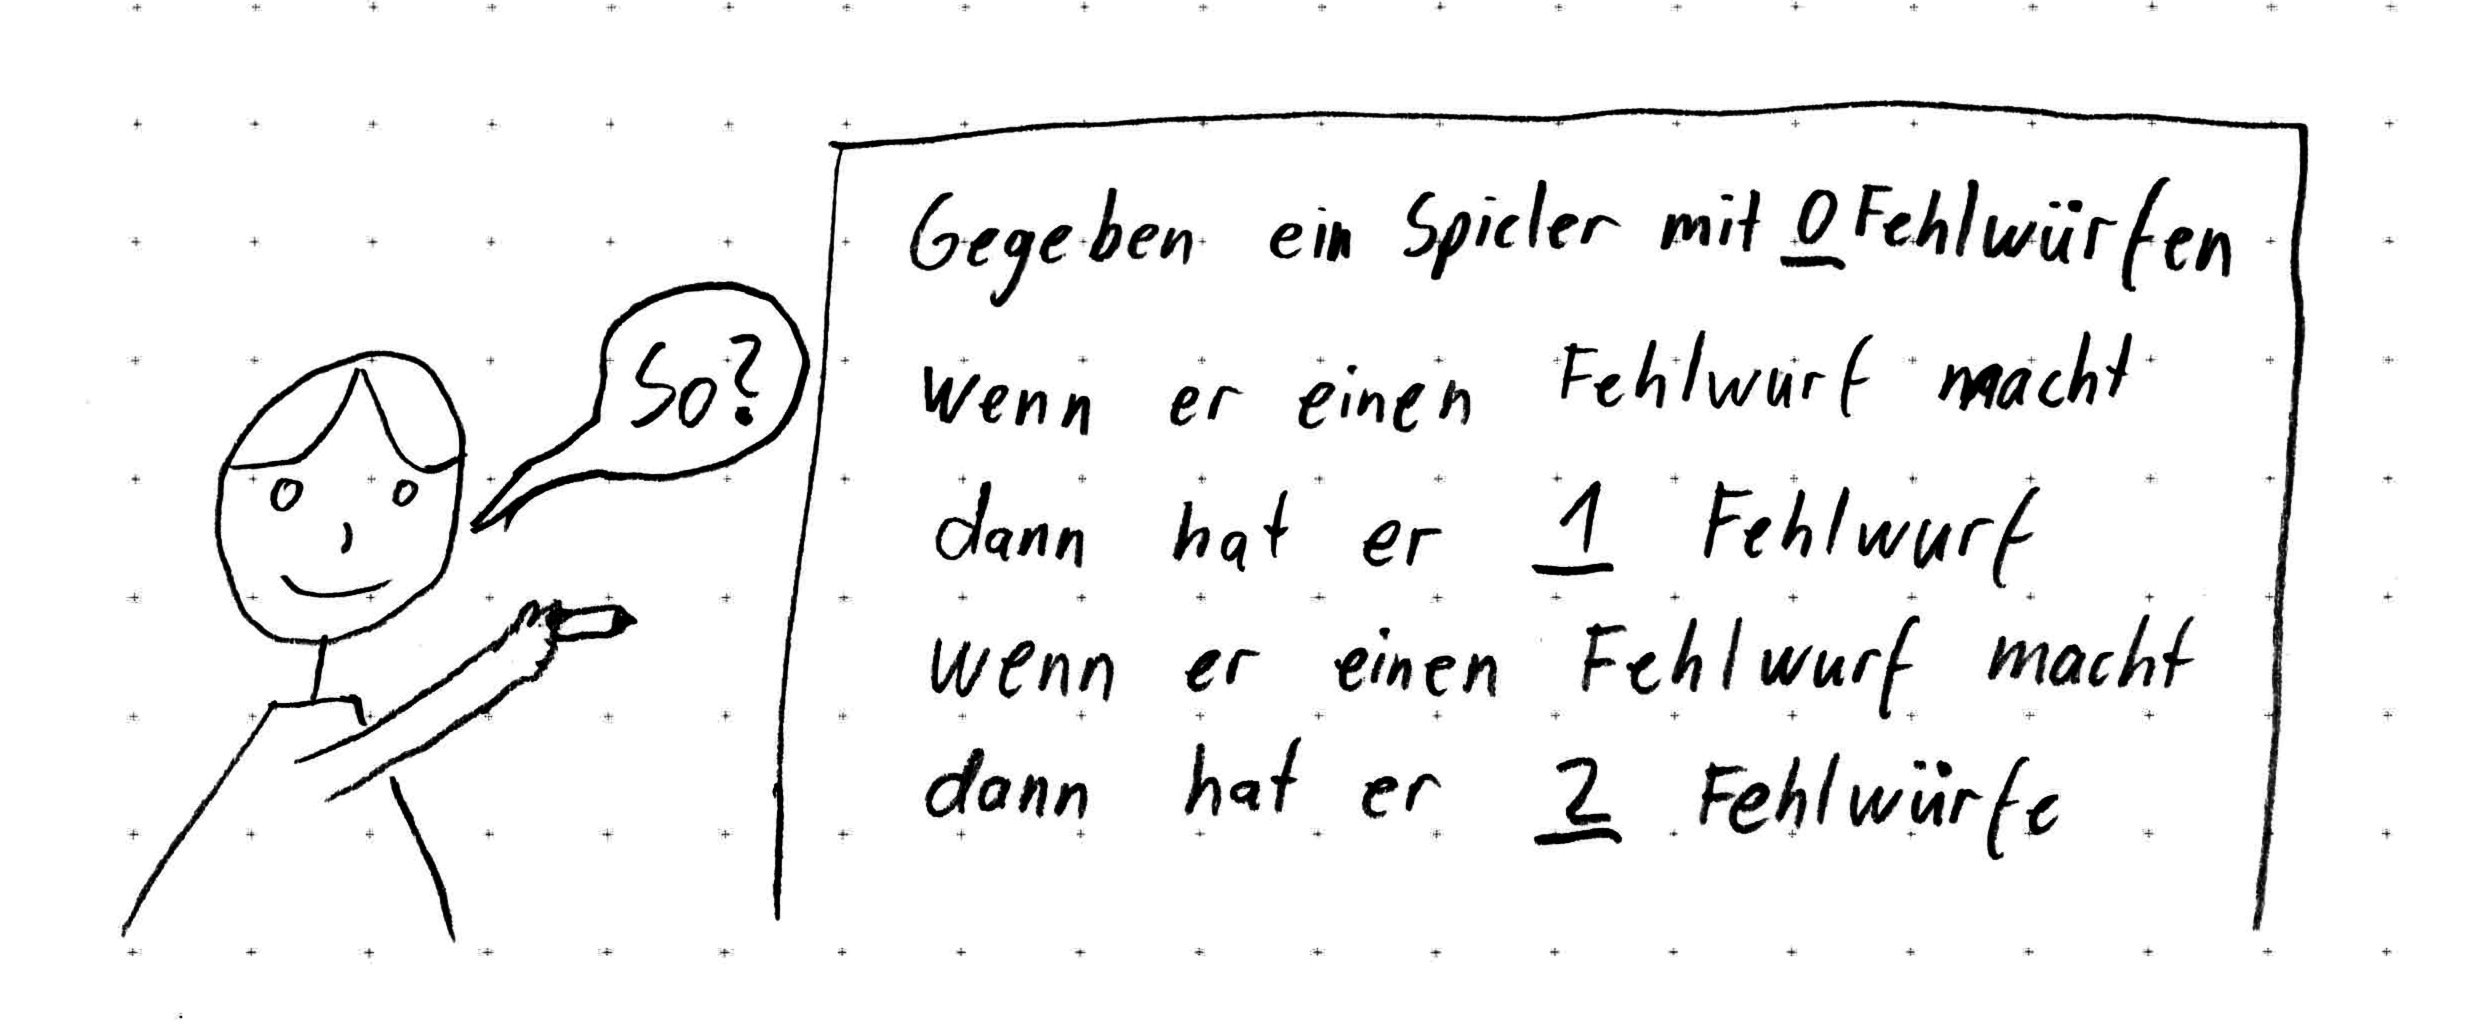 So?
Gegeben ein Spieler mit 0 Fehlwürfen
wenn er einen Fehlwurf macht
dann hat er 1 Fehlwurf
wenn er einen Fehlwurf macht
dann hat er 2 Fehlwürfe